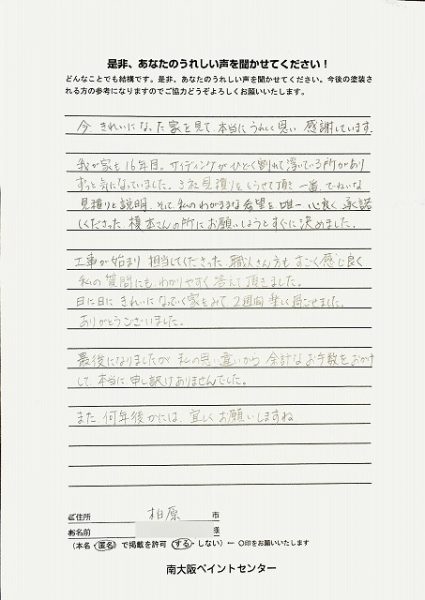 是非、あなたのうれしい声を聞かせてください！
どんなことでも結構です。是非、あなたのうれしい声を聞かせてください。今後の塗装さ
れる方の参考になりますのでご協力どうぞよろしくお願いいたします。
今 きれいになった家を見て、本当にうれしく思い 感謝しています。
我が家も16年目。サイディングがひどく割れて浮いている所があり
ずっと気になっていました。3社見積りをとらせて頂き 一番、ていねいな
見積りと説明、そして私のわがままな希望を唯一 心良く承諾
してくださった 榎本さんの所にお願いしようとすぐに決めました。
工事が始まり 担当してくださった 職人さん方も すごく感じ良く
私の質問にも、わかりやすく 答えて頂きました。
日に日に きれいになっていく家をみて、2週間 楽しく過ごせました。
ありがとうございました。
最後になりましたが、私の思い違いから 余計なお手数をおかけ
して、本当に申し訳けありませんでした。
また、何年後かには、宜しくお願いしますね
ご住所 柏原 市
お名前 様
（本名・匿名）で掲載を許可（する・しない）← ○印をお願いいたします
南大阪ペイントセンター